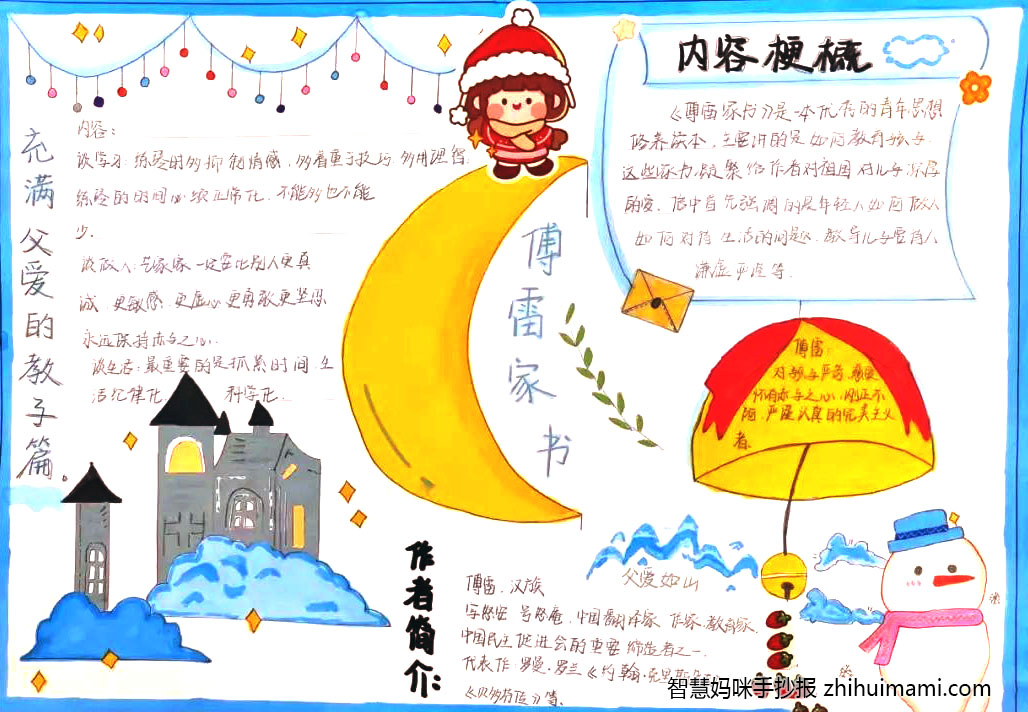 充满父爱的教子篇。
内容:
谈学习:练琴时多抑制情感,多着重于技巧,多用理智
练琴的时间必须正常化,不能多也不能
少.
谈做人:艺术家一定要比别人更真
诚,更敏感,更虚心,更勇敢更坚忍
永远保持赤子之心.
谈生活:最重要的是抓紧时间,生
活纪律化, 科学化.
傅雷家书
内容梗概
《傅雷家书》是一本优秀的青年思想
修养读本,主要讲的是如何教育孩子.
这些家书凝聚着作者对祖国对儿子深厚
的爱.信中首先强调的是年轻人如何做人
如何对待生活的问题,教导儿子要待人
谦虚严谨等.
傅雷:
对孩子严苛,
怀有赤子之心,刚正不
阿,严谨认真的完美主义
者.
父爱如山
作者简介:
傅雷,汉族
字怒安 号怒庵,中国翻译家 作家.教育家.
中国民主促进会的重要缔造者之一.
代表作:罗曼·罗兰《约翰·克里斯朵
《贝多芬传》等.
智慧妈咪手抄报 zhihuimami.com